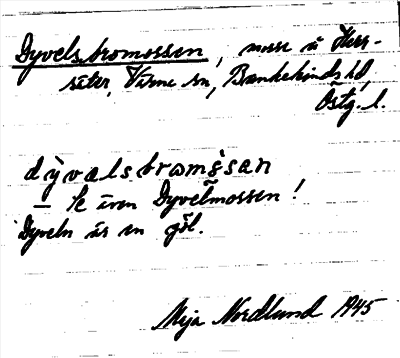 Dyvelsbromossen, mosse å Herr-
säter, Värna sn, Bankekinds hd,
Östg. l.
dỳvəlsbromʒ̀sən
– k även Dyvelmossen!
Dyveln är en göl.
Meja Nordlund 1945